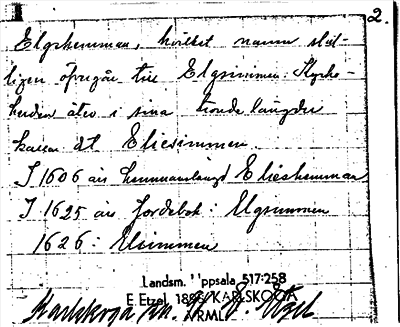 2.
Elgshemman, hvilket namn slut-
ligen öfvergår till Elgsimmen. Kyrko-
herden åter i sina tionde längder
kallar dt Eliesimmen.
I 1606 års hemmanslängd Elieshemman
I 1625 års Jordebok: Elgsimmen
1626: Elsimmen
Landsm. Uppsala 517:258
E. Etzel, 1895 KARLSKOGA
VÄRML.
Karlskoga sn. E. Etzel